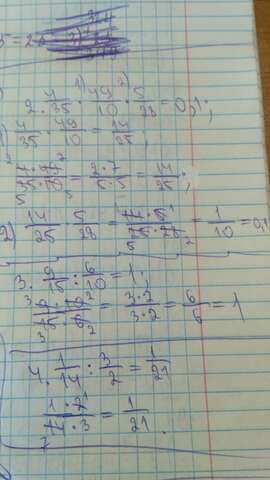 2. 4/35 · 49/10 · 5/28 = 0,1;
4/35 · 49/10 = 14/25;
4 · 49/35 · 10 = 2 · 7/5 · 5 = 14/25;
2) 14/25 · 5/28 = 14 · 5/25 · 28 = 1/10 = 0,1
3. 9/15 : 6/10 = 1.
9 · 10/15 · 6 = 3 · 2/3 · 2 = 6/6 = 1
4. 1/14 : 3/2 = 1/21
1 · 2/14 · 3 = 1/21.